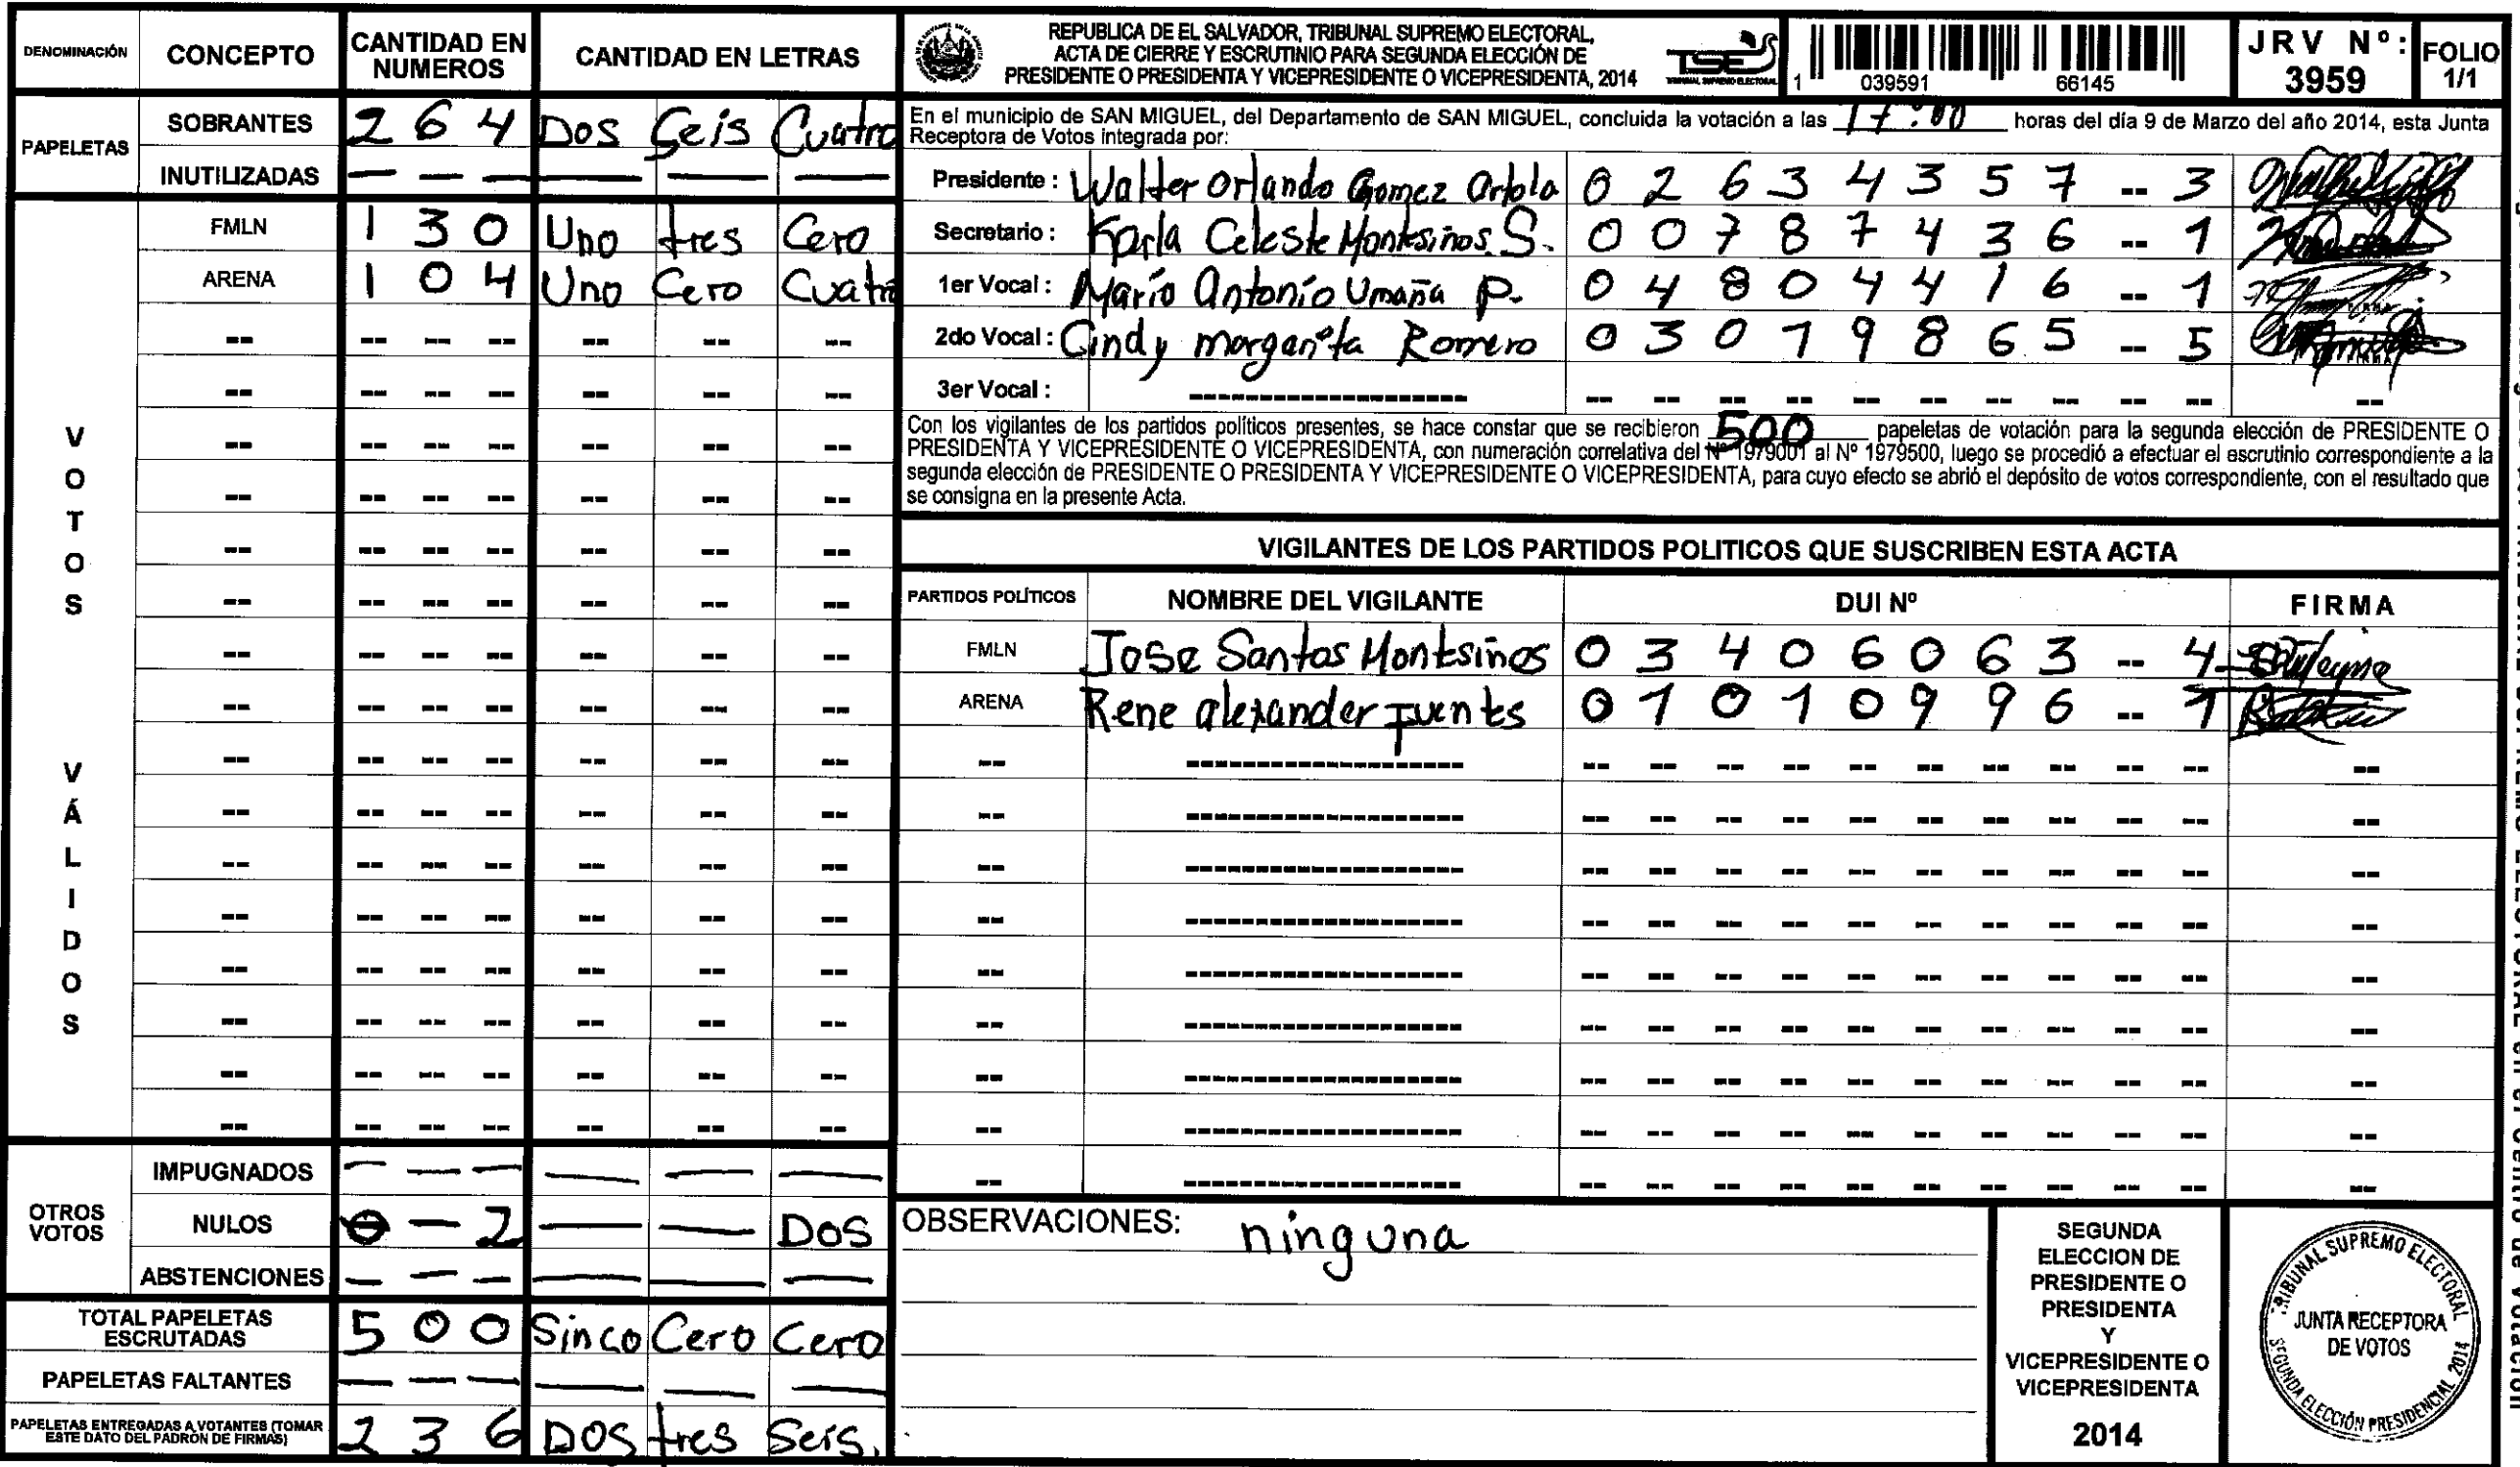 DENOMINACIÓN CONCEPTO CANTIDAD EN NUMEROS CANTIDAD EN LETRAS
PAPELETAS
SOBRANTES 2 6 4 Dos Seis Cuatro
INUTILIZADAS — — — — — —
VOTOS VÁLIDOS
FMLN 1 3 0 Uno tres Cero
ARENA 1 0 4 Uno Cero Cuatro
OTROS VOTOS
IMPUGNADOS — — — — — —
NULOS 0 — 2 — — Dos
ABSTENCIONES — — — — — —
TOTAL PAPELETAS ESCRUTADAS 5 0 0 Sinco Cero Cero
PAPELETAS FALTANTES — — — — — —
PAPELETAS ENTREGADAS A VOTANTES (TOMAR ESTE DATO DEL PADRÓN DE FIRMAS) 2 3 6 DOS tres Seis.
REPUBLICA DE EL SALVADOR, TRIBUNAL SUPREMO ELECTORAL,
ACTA DE CIERRE Y ESCRUTINIO PARA SEGUNDA ELECCIÓN DE
PRESIDENTE O PRESIDENTA Y VICEPRESIDENTE O VICEPRESIDENTA, 2014
TSE
TRIBUNAL SUPREMO ELECTORAL
1 039591 66145
JRV Nº: 3959
FOLIO 1/1
En el municipio de SAN MIGUEL, del Departamento de SAN MIGUEL, concluida la votación a las 17:00 horas del día 9 de Marzo del año 2014, esta Junta
Receptora de Votos integrada por:
Presidente : Walter Orlando Gomez Artola 0 2 6 3 4 3 5 7 -- 3
Secretario : Karla Celeste Montesinos S. 0 0 7 8 7 4 3 6 -- 1
1er Vocal : Mario Antonio Umaña P. 0 4 8 0 4 4 1 6 -- 1
2do Vocal : Cindy margarita Romero 0 3 0 7 9 8 6 5 -- 5
3er Vocal :
Con los vigilantes de los partidos políticos presentes, se hace constar que se recibieron 500 papeletas de votación para la segunda elección de PRESIDENTE O
PRESIDENTA Y VICEPRESIDENTE O VICEPRESIDENTA, con numeración correlativa del Nº 1979001 al Nº 1979500, luego se procedió a efectuar el escrutinio correspondiente a la
segunda elección de PRESIDENTE O PRESIDENTA Y VICEPRESIDENTE O VICEPRESIDENTA, para cuyo efecto se abrió el depósito de votos correspondiente, con el resultado que
se consigna en la presente Acta.
VIGILANTES DE LOS PARTIDOS POLITICOS QUE SUSCRIBEN ESTA ACTA
PARTIDOS POLÍTICOS NOMBRE DEL VIGILANTE DUI Nº FIRMA
FMLN Jose Santos Montesinos 0 3 4 0 6 0 6 3 -- 4
ARENA Rene alexander Fuentes 0 1 0 1 0 9 9 6 -- 1
OBSERVACIONES: ninguna
SEGUNDA
ELECCION DE
PRESIDENTE O
PRESIDENTA
Y
VICEPRESIDENTE O
VICEPRESIDENTA
2014
TRIBUNAL SUPREMO ELECTORAL
JUNTA RECEPTORA
DE VOTOS
SEGUNDA ELECCIÓN PRESIDENCIAL 2014